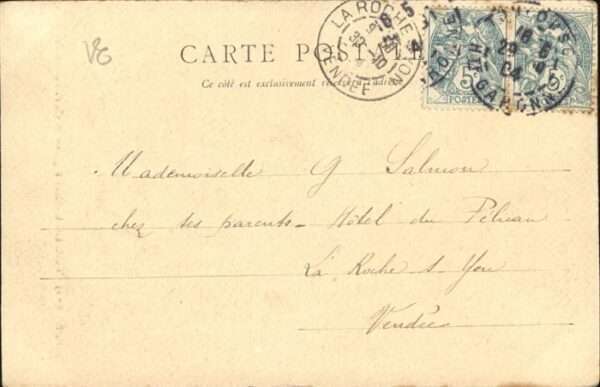 VG
CARTE POSTALE
Ce côté est exclusivement réservé à l'adresse
LA ROCHE S YON
VENDÉE
5c 5c
POSTES
GARONNE
Mademoiselle G Salmon
chez ses parents - Hôtel du Pélican
La Roche s. Yon
Vendée